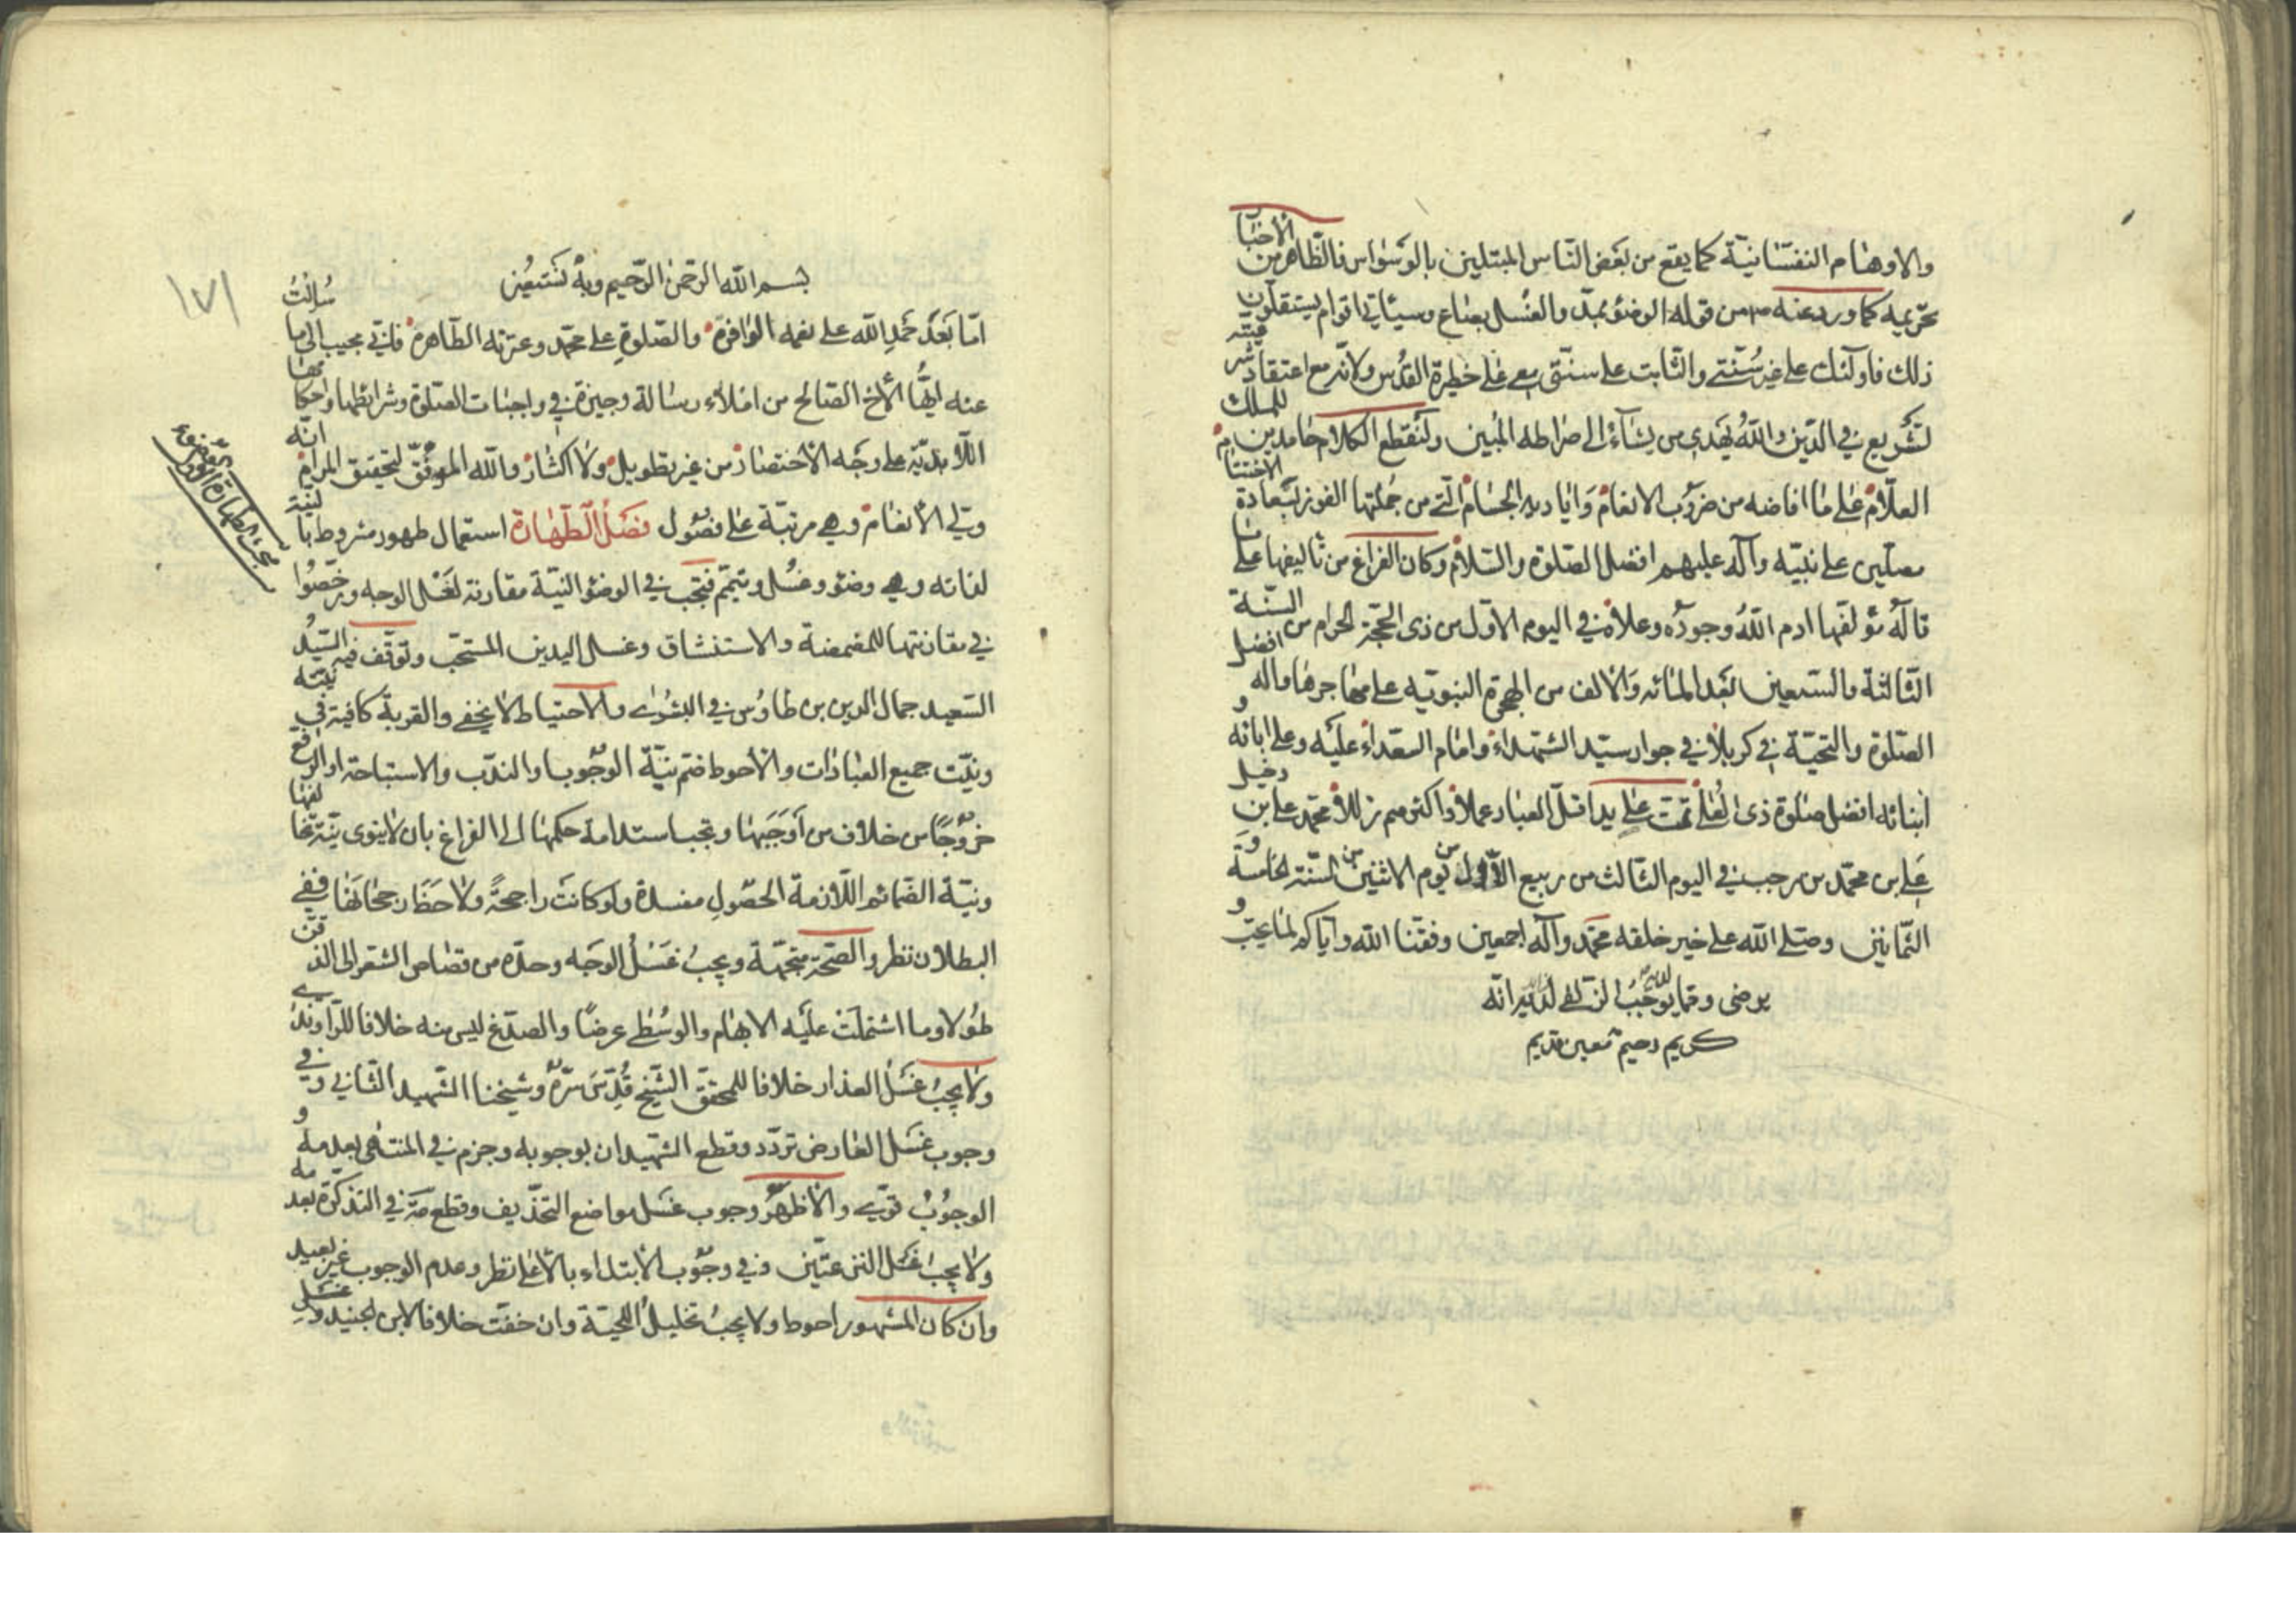 والاوهام النفسانية كما يقع من بعض الناس المبتلين بالوسواس فالظاهر من الأخبار
تحريمه كما ورد عنه ص من قوله الوضؤ بمد والغسل بصاع وسيأتي اقوام يستقلون
ذلك فاولئك على غير سنتي والثابت على سنتي معي في حظيرة القدس ولانه مع اعتقاد شرعيته
تشريع في الدين والله يهدى من يشاء الى صراطه المبين ولنقطع الكلام حامدين للملك
العلام على ما افاضه من ضروب الانعام واياديه الجسام التي من جملتها الفوز بسعادة الاختتام
مصلين على نبيه وآله عليهم افضل الصلوة والسلام وكان الفراغ من تاليفها على ما
قاله مؤلفها ادام الله وجوده وعلاه في اليوم الاول من ذى الحجة الحرام من السنة
الثالثة والسبعين بعد المائه والالف من الهجرة النبوية على مهاجرها وآله افضل
الصلوة والتحية في كربلا في جوار سيد الشهداء وامام السعداء عليه وعلى ابائه و
ابنائه افضل صلوة ذى العلا تمت على يد اقل العباد عملا واكثرهم زللا محمد على بن
على بن محمد بن رجب في اليوم الثالث من ربيع الأول من يوم الاثنين من السنة الخامسة و
الثمانين وصلى الله على خير خلقه محمد وآله اجمعين وفقنا الله واياكم لما يحب و
يرضى وقما يوجب الزلفى لديه انه
كريم رحيم معين قديم
١٧١
بسم الله الرحمن الرحيم وبه نستعين
امّا بعد حمد الله على نعمه الوافرة والصلوة على محمد وعترته الطاهرة فاني مجيب الى ما سالت
عنه ايها الأخ الصالح من املاء رسالة وجيزة في واجبات الصلوة وشرائطها واحكامها
اللابدية على وجه الأختصار من غير تطويل ولا اكثار والله الموفق لتحقيق المرام انه
ولي الأنعام وهي مرتبة على فصول فصل الطهارة استعمال طهور مشروط بالنية
لغاته وهي وضؤ وغسل وتيمم فتجب في الوضؤ النية مقارنة لغسل الوجه ورخصوا
في مقارنتها للمضمضة والاستنشاق وغسل اليدين المستحب وتوقف فيه السيد
السعيد جمال الدين بن طاوس في البشرى والاحتياط لا يخفى والقربة كافية في نيته
ونيت جميع العبادات والأحوط ضم نية الوجوب او الندب والاستباحة او الرفع
خروجا من خلاف من أوجبها وتجب استدامة حكمها الى الفراغ بان لا ينوى نية تخالفها
ونية الضمائم اللازمة الحصول مفسدة ولو كانت راجحة ولاحظ رجحانها ففي
البطلان نظر والصحة متجهة ويجب غسل الوجه وحده من قصاص الشعر الى الذقن
طولا وما اشتملت عليه الابهام والوسطى عرضا والصدغ ليس منه خلافا للراوندي
ولا يجب غسل العذار خلافا للمحقق الشيخ قدس سره وشيخنا الشهيد الثاني وفي
وجوب غسل العارض تردد وقطع الشهيدان بوجوبه وجزم في المنتهى بعدمه و
الوجوب قوي والأظهر وجوب غسل مواضع التحذيف وقطع في التذكرة بعدمه
ولا يجب غسل النزعتين وفي وجوب الأبتداء بالأعلى نظر وعدم الوجوب غير بعيد
وان كان المشهور احوط ولا يجب تخليل اللحية وان خفت خلافا لابن الجنيد ولا غسل